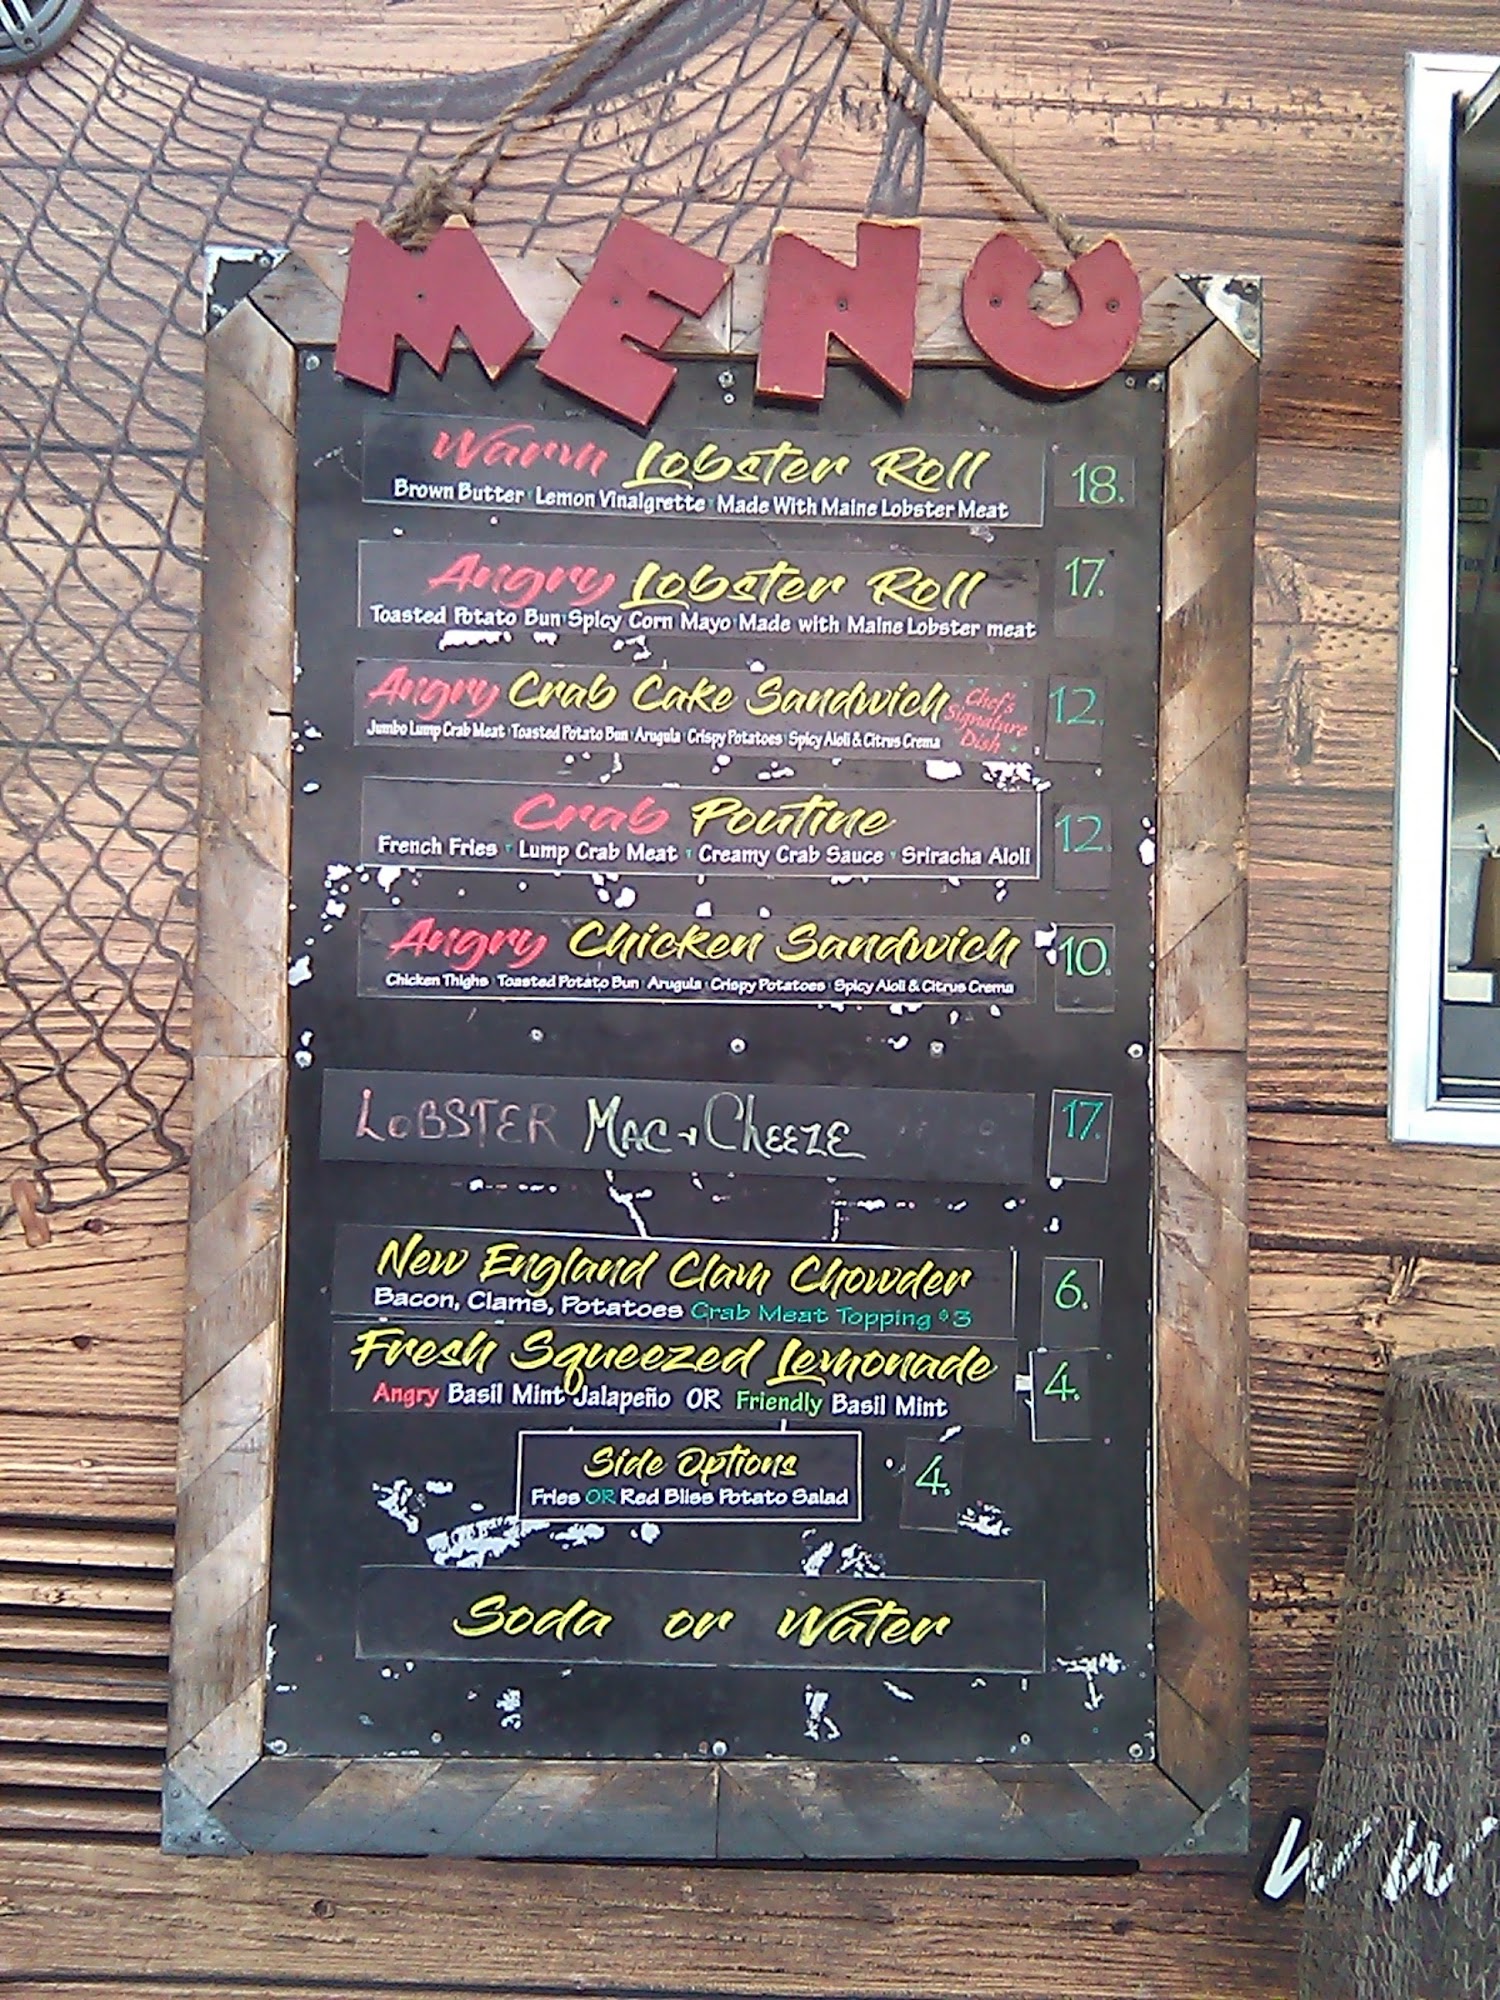 MENU
Warm Lobster Roll 18.
Brown Butter Lemon Vinaigrette Made With Maine Lobster Meat
Angry Lobster Roll 17.
Toasted Potato Bun Spicy Corn Mayo Made with Maine Lobster meat
Angry Crab Cake Sandwich 12.
Chef's
Signature
Dish
Jumbo Lump Crab Meat Toasted Potato Bun Arugula Crispy Potatoes Spicy Aioli & Citrus Crema
Crab Poutine 12.
French Fries Lump Crab Meat Creamy Crab Sauce Sriracha Aioli
Angry Chicken Sandwich 10.
Chicken Thighs Toasted Potato Bun Arugula Crispy Potatoes Spicy Aioli & Citrus Crema
LOBSTER MAC + CHEEZE 17.
New England Clam Chowder 6.
Bacon, Clams, Potatoes Crab Meat Topping $3
Fresh Squeezed Lemonade 4.
Angry Basil Mint Jalapeño OR Friendly Basil Mint
Side Options 4.
Fries OR Red Bliss Potato Salad
Soda or Water